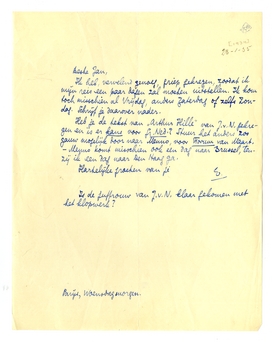 23-1-35
Beste Jan,
Ik heb, vervelend genoeg, griep gekregen, zoodat ik
mijn reis een paar dagen zal moeten uitstellen. Ik kom
toch misschien al Vrijdag, anders Zaterdag of zelfs Zon-
dag. Schrijf je daarover nader.
Heb je de tekst van "Arthur Hille" van J.v.N. gekre-
gen en is er kans voor Gr. Ned.? Stuur het anders zoo
gauw mogelijk door naar Menno, voor Forum van Maart.
- Menno komt misschien ook een dag naar Brussel, ten-
zij ik een dag naar den Haag ga.
Hartelijke groeten van je
E.
Is de juffrouw van J.v.N. klaar gekomen met
het klopwerk?
Parijs, Woensdagmorgen.